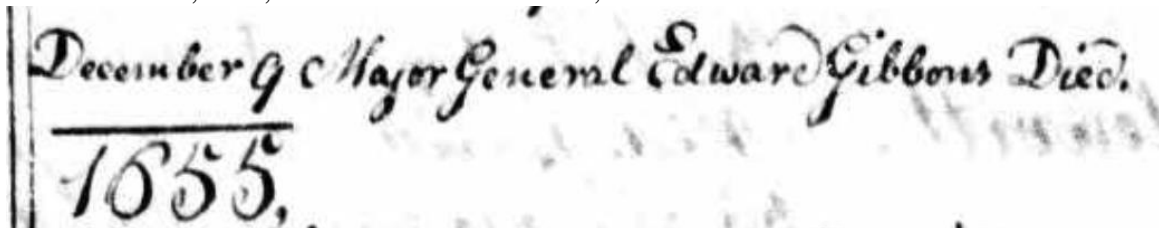 December 9 Major General Edward Gibbons Died.
1655,